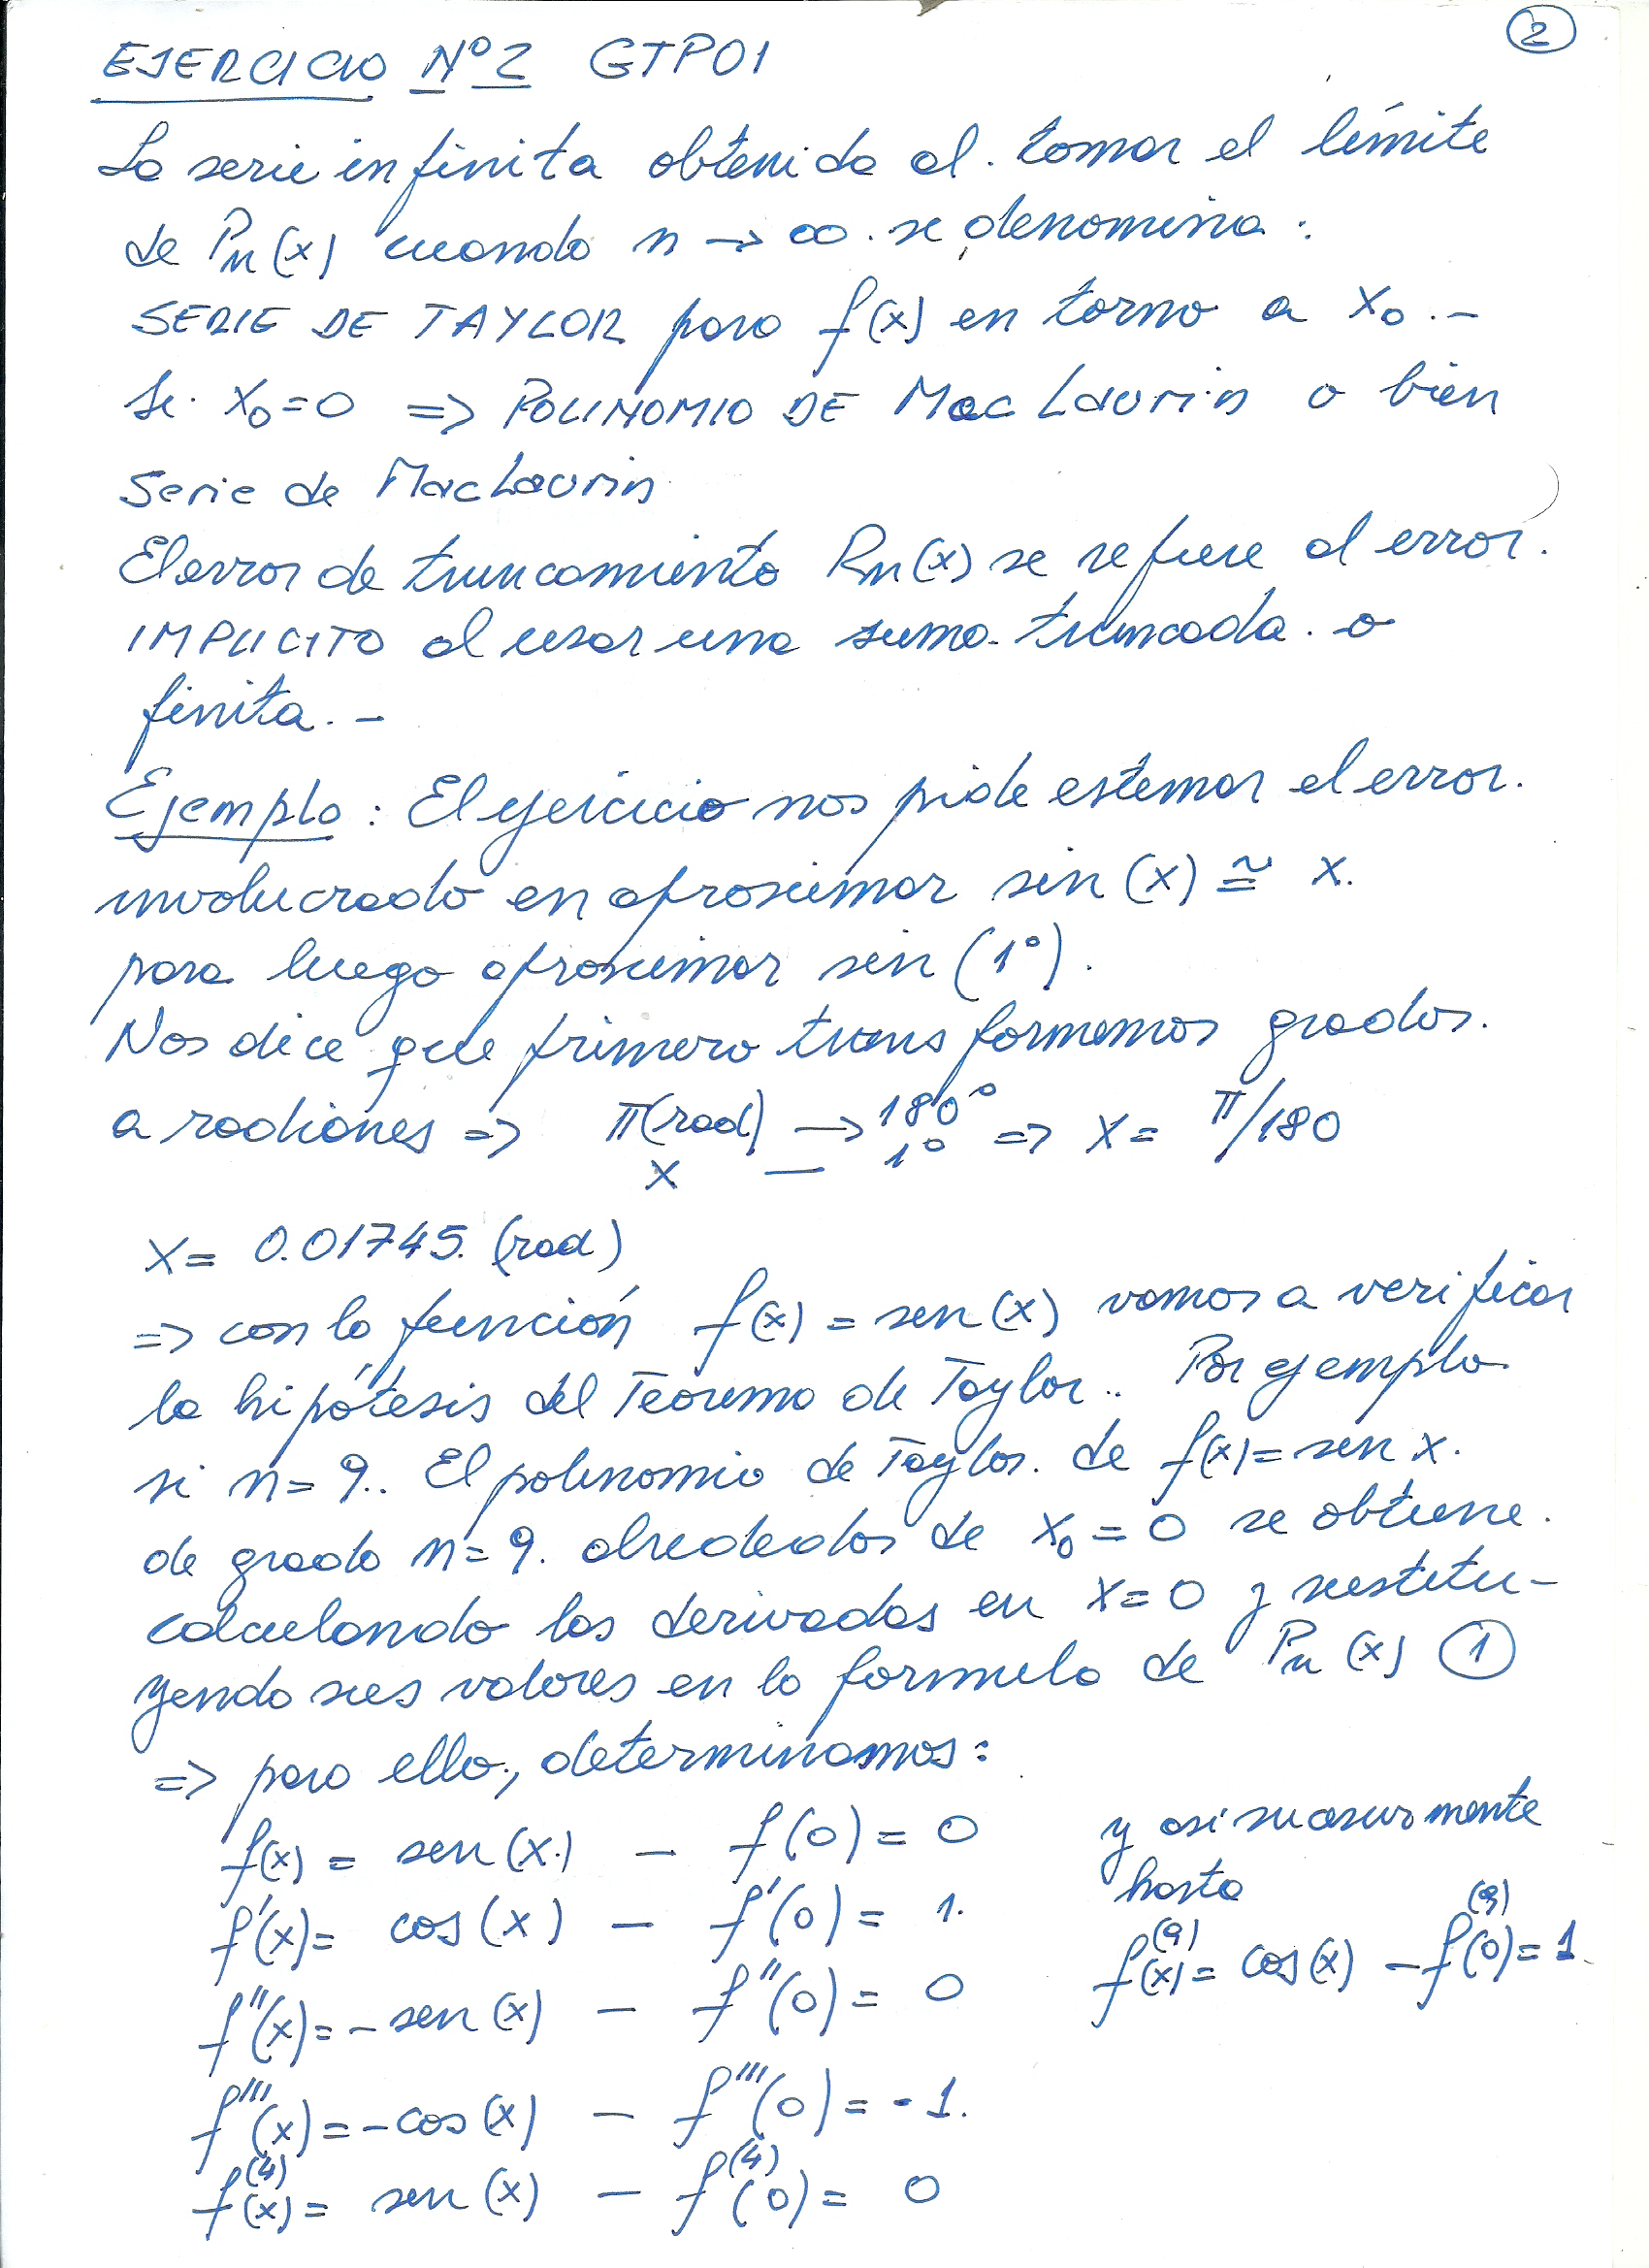 2
EJERCICIO Nº 2 GTP01
La serie infinita obtenida al. tomar el límite
de Pn(x) cuando n → ∞. se denomina:
SERIE DE TAYLOR para f(x) en torno a x₀.-
Si. x₀=0 => POLINOMIO DE MacLaurin o bien
Serie de MacLaurin
El error de truncamiento Rn(x) se refiere al error.
IMPLICITO al usar una suma truncada. o
finita.-
Ejemplo: El ejercicio nos pide estimar el error.
involucrado en aproximar sin(x) ≅ x.
para luego aproximar sin (1°).
Nos dice que primero transformemos grados.
a radianes => π(rad) → 180° => x = π/180
x — 1°
x = 0.01745. (rad)
=> con la función f(x) = sen(x) vamos a verificar
la hipótesis del Teorema de Taylor.. Por ejemplo
si n=9.. El polinomio de Taylor. de f(x)=sen x.
de grado n=9. alrededor de x₀=0 se obtiene.
calculando las derivadas en x=0 y sustitu-
yendo sus valores en la formula de Pn(x) ①
=> para ello, determinamos:
f(x) = sen(x.) — f(0) = 0
f'(x) = cos(x) — f'(0) = 1.
f''(x) = -sen(x) — f''(0) = 0
f'''(x) = -cos(x) — f'''(0) = -1.
f⁽⁴⁾(x) = sen(x) — f⁽⁴⁾(0) = 0
y asi sucesivamente
hasta
f⁽⁹⁾(x) = cos(x) — f⁽⁹⁾(0) = 1.